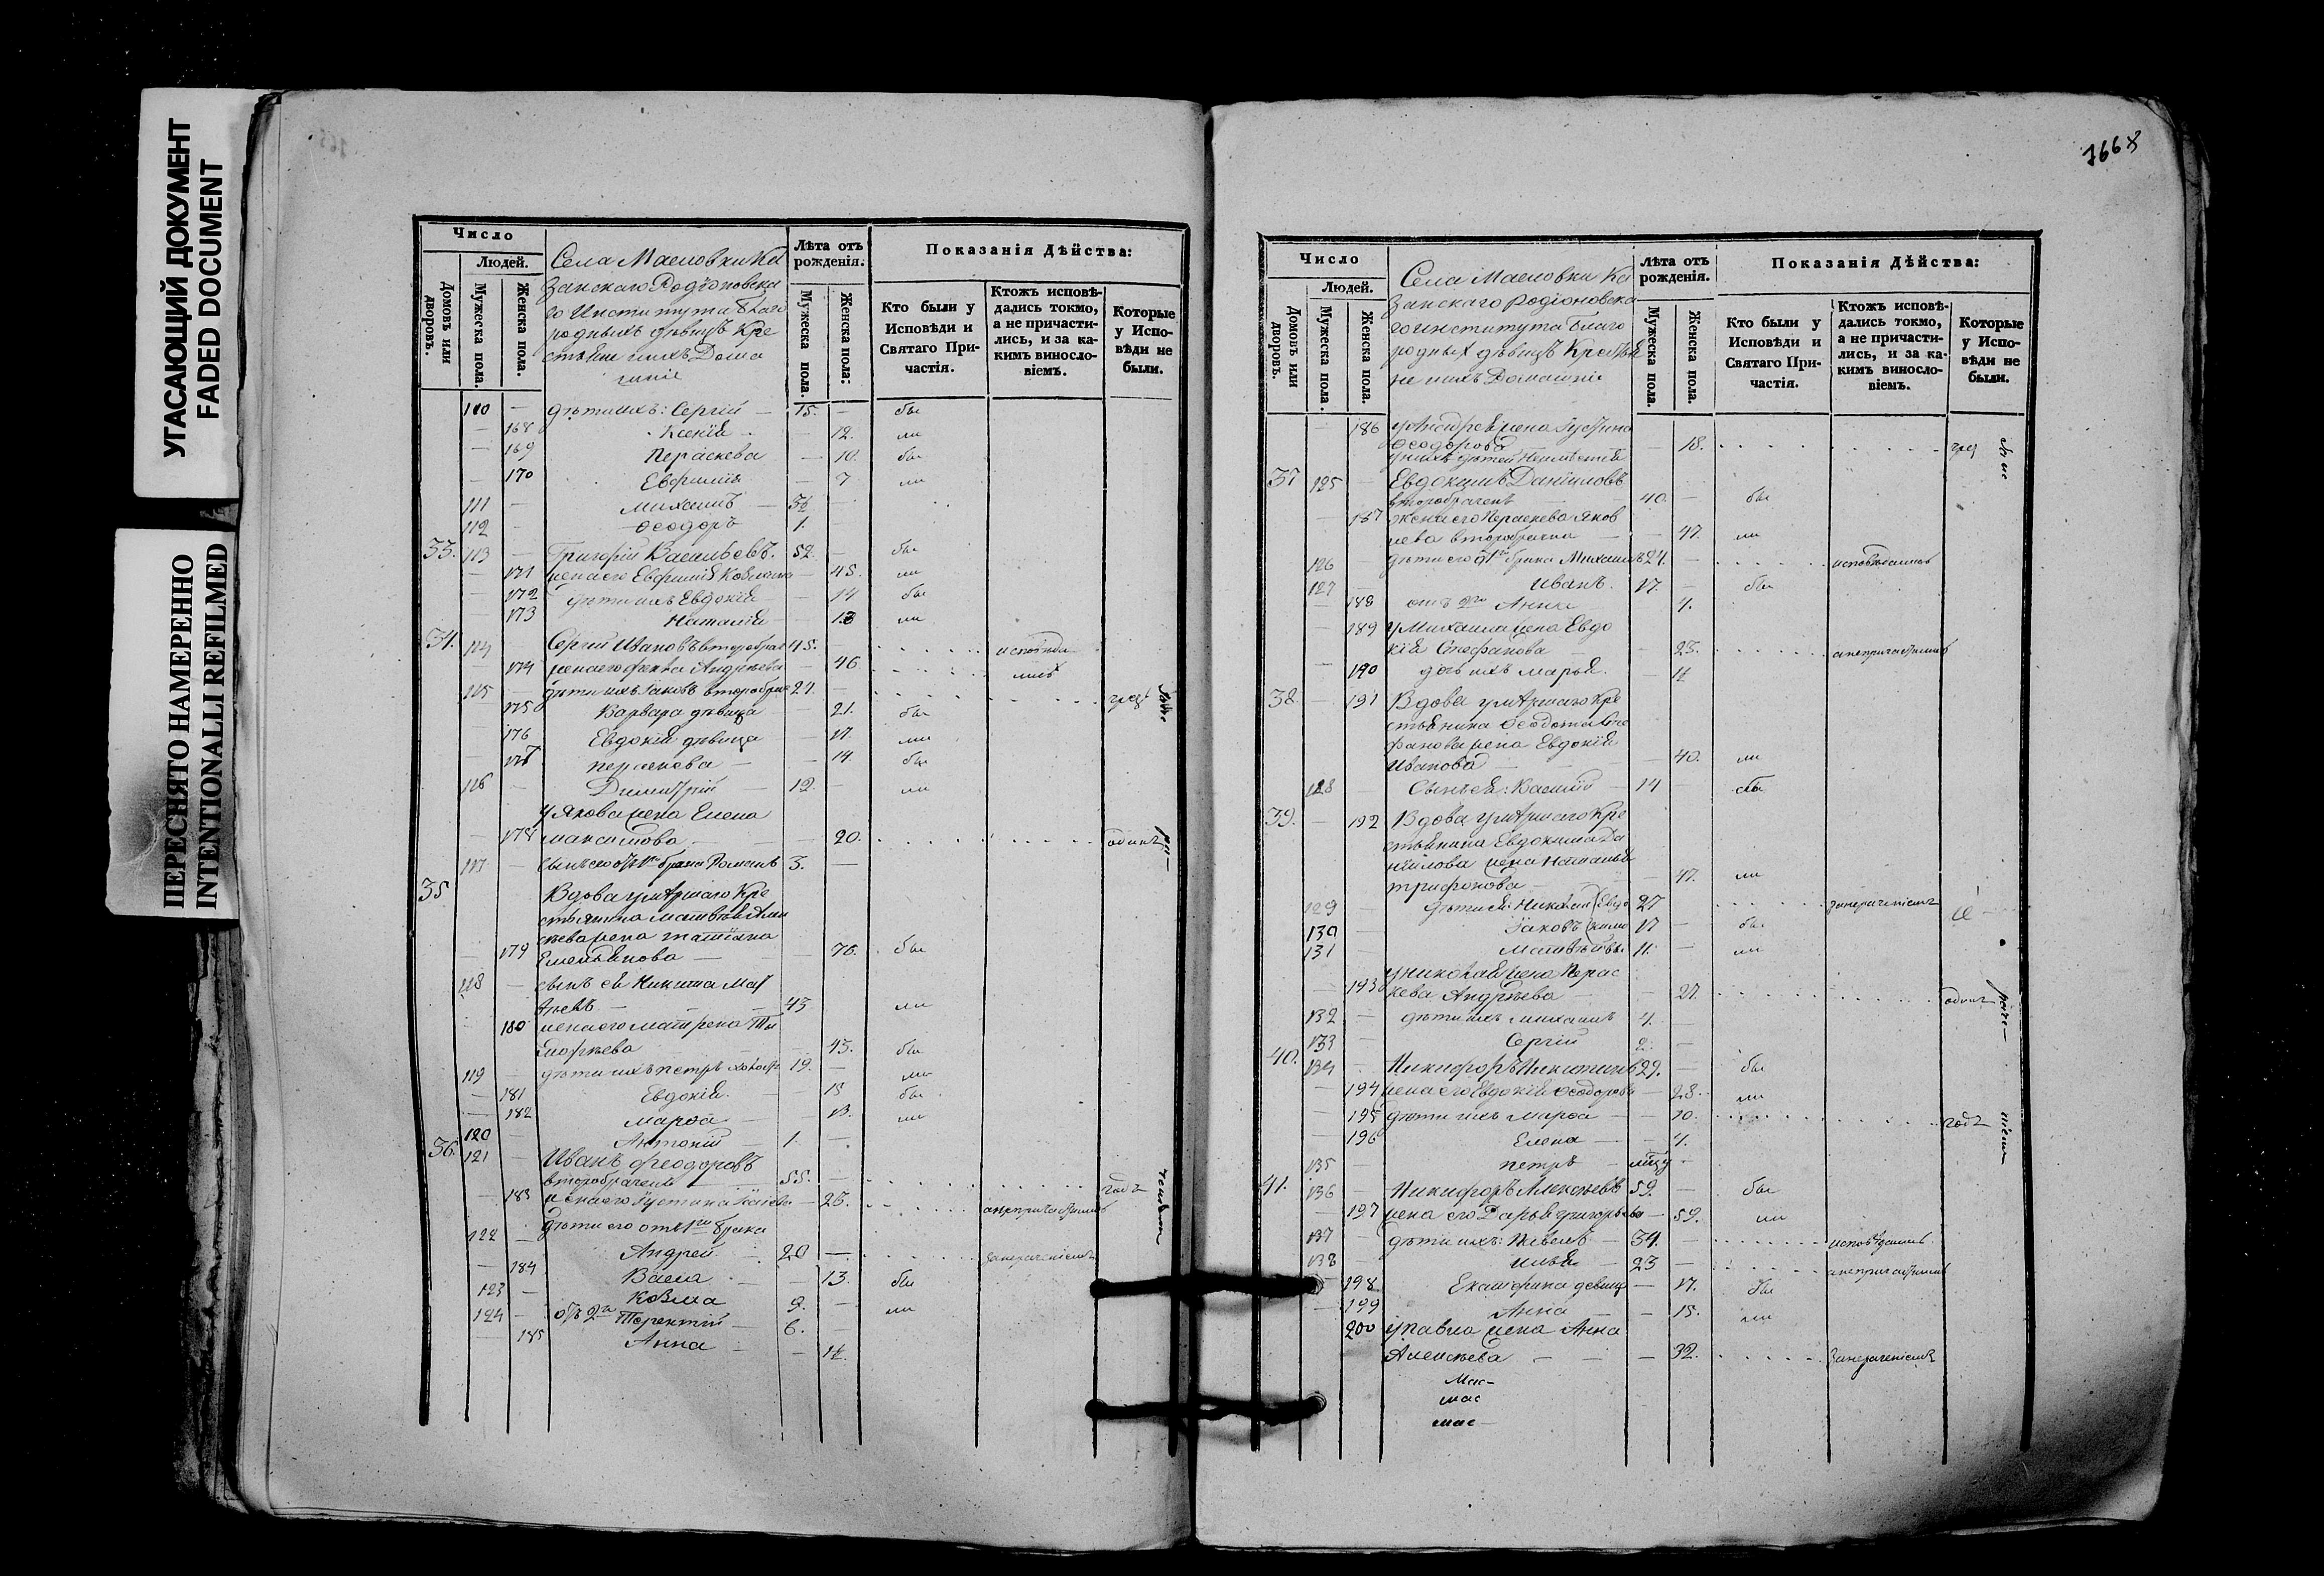 УГАСАЮЩИЙ ДОКУМЕНТ
FADED DOCUMENT
ПЕРЕСНЯТО НАМЕРЕННО
INTENTIONALLI REFILMED
Число
Людей.
Домовъ или дворовъ.
Мужеска пола.
Женска пола.
Села Масловки Ка
занскаго Родіоновска
го Института благо
родныхъ дѣвицъ Кре
стьяне и ихъ Домаш
ніе
Лѣта отъ рожденія.
Мужеска пола.
Женска пола:
Показанія Дѣйства:
Кто были у Исповѣди и Святаго При-частія.
Ктожъ исповѣ-дались токмо, а не причасти-лись, и за ка-кимъ винословіемъ.
Которые у Испо-вѣди не были.
110 — дѣти ихъ: Сергій — 15. — бы
— 168 Ксенія — 12. ли
— 169 Параскева — 10. бы
— 170 Евфимія — 7 ли
111 — Михаилъ —
112 — Феодоръ 1.
33. 113 — Григорій Васильевъ. 52. — бы
— 171 жена его Евфимія Козмина — 45. ли
— 172 дѣти ихъ Евдокія — 14 бы
— 173 Наталія — 13 ли
34. 114 Сергій Ивановъ второбрач 45. исповѣда
174 жена его Фекла Андрѣева — 46 лись
115 — дѣти ихъ Іаковъ второбрач 27. —
175 Варвара дѣвица — 21. бы
176 Евдокія дѣвица — 17. ли
177 Параскева — 14. бы
116 — Димитрій — 12. — ли
у Якова жена Елена
— 178 Максимова — 20. одинъ
117 — сынъ его отъ 1го брака Романъ 3. —
35 Вдова умершаго Кре
стьянина Матвѣя Але
ксѣева жена Татіана
— 179 Емельянова — — 76. бы
118 — сынъ ея Никита Мат
вѣевъ — 43 ли
180 жена его Матрена Ти
мофѣева — 43. бы
119 — дѣти ихъ Петръ холост 19. — ли
— 181 Евдокія. — 15 бы
— 182 Марѳа — — 13. ли
120 — Антоній — 1. —
36. 121 — Иванъ Феодоровъ
второбраченъ — 55. — годъ
— 183 жена его Іустина Іаковл — 25. а не причастились
дѣти его отъ 1го брака
122 — Андрей 20 — за нераченіемъ
— 184 Васса — 13. бы
123 — Козма 9. — ли
124 — отъ 2го Терентій — 6. —
— 185 Анна — —
166
Число
Людей.
Домовъ или дворовъ.
Мужеска пола.
Женска пола.
Села Масловки Ка
занскаго Родіоновска
го института благо
родныхъ дѣвицъ Крестья
не и ихъ Домашніе
Лѣта отъ рожденія.
Мужеска пола.
Женска пола.
Показанія Дѣйства:
Кто были у Исповѣди и Святаго При-частія.
Ктожъ исповѣ-дались токмо, а не причасти-лись, и за ка-кимъ винословіемъ.
Которые у Испо-вѣди не были.
— 186 у Андрея жена Іустина
Феодорова — 18.
37 125 — Евдокимъ Даніиловъ
второбраченъ 40. — бы
— 187 жена его Параскева Яков
лева второбрачна — 47. ли
126 — дѣти его отъ 1го брака Михаилъ 24. — исповѣдались
127 Иванъ. 17. — бы
— 188 отъ 2го Анна 4.
— 189 у Михаила жена Евдо
кія Стефанова — 23. а не причастились
— 190 дочь ихъ Марья. —
38. — 191 Вдова умершаго Кре
стьянина Феодота Сте
фанова жена Евдокія
Иванова — 40. ли
128 — Сынъ ея: Василій — 14 — бы
39. — 192 Вдова умершаго Кре
стьянина Евдокима Да
ніилова жена Наталья
Трифонова — 47. ли
129 — дѣти ея: Николай (Евдо 27 за нераченіемъ
130 — Іаковъ (кимо 17 — бы
131 Матвѣй (вы 11. — ли
у Николая жена Парас
— 193 кева Андрѣева — — 27. одинъ
132 — дѣти ихъ Михаилъ 4. —
133 — Сергій 2. —
40. 134 — Никифоръ Никитинъ 29. — бы
— 194 жена его Евдокія Феодорова — 28. ли
— 195 дѣти ихъ Марѳа — — 10. годъ
— 196 Елена — — 4.
135 — Петръ —
41. 136 — Никифоръ Алексѣевъ 59. — бы
— 197 жена его Дарья Григорьева — 59. ли
137 — дѣти ихъ: Павелъ — 34. — исповѣдались
138 — Илья — 23 — а не причастились
— 198 Екатерина девица — 17. бы
— 199 Анна — — 15. ли
200 у Павла жена Анна
Алексѣева — — — 32. за нераченіемъ
Мас-
мас
мас-